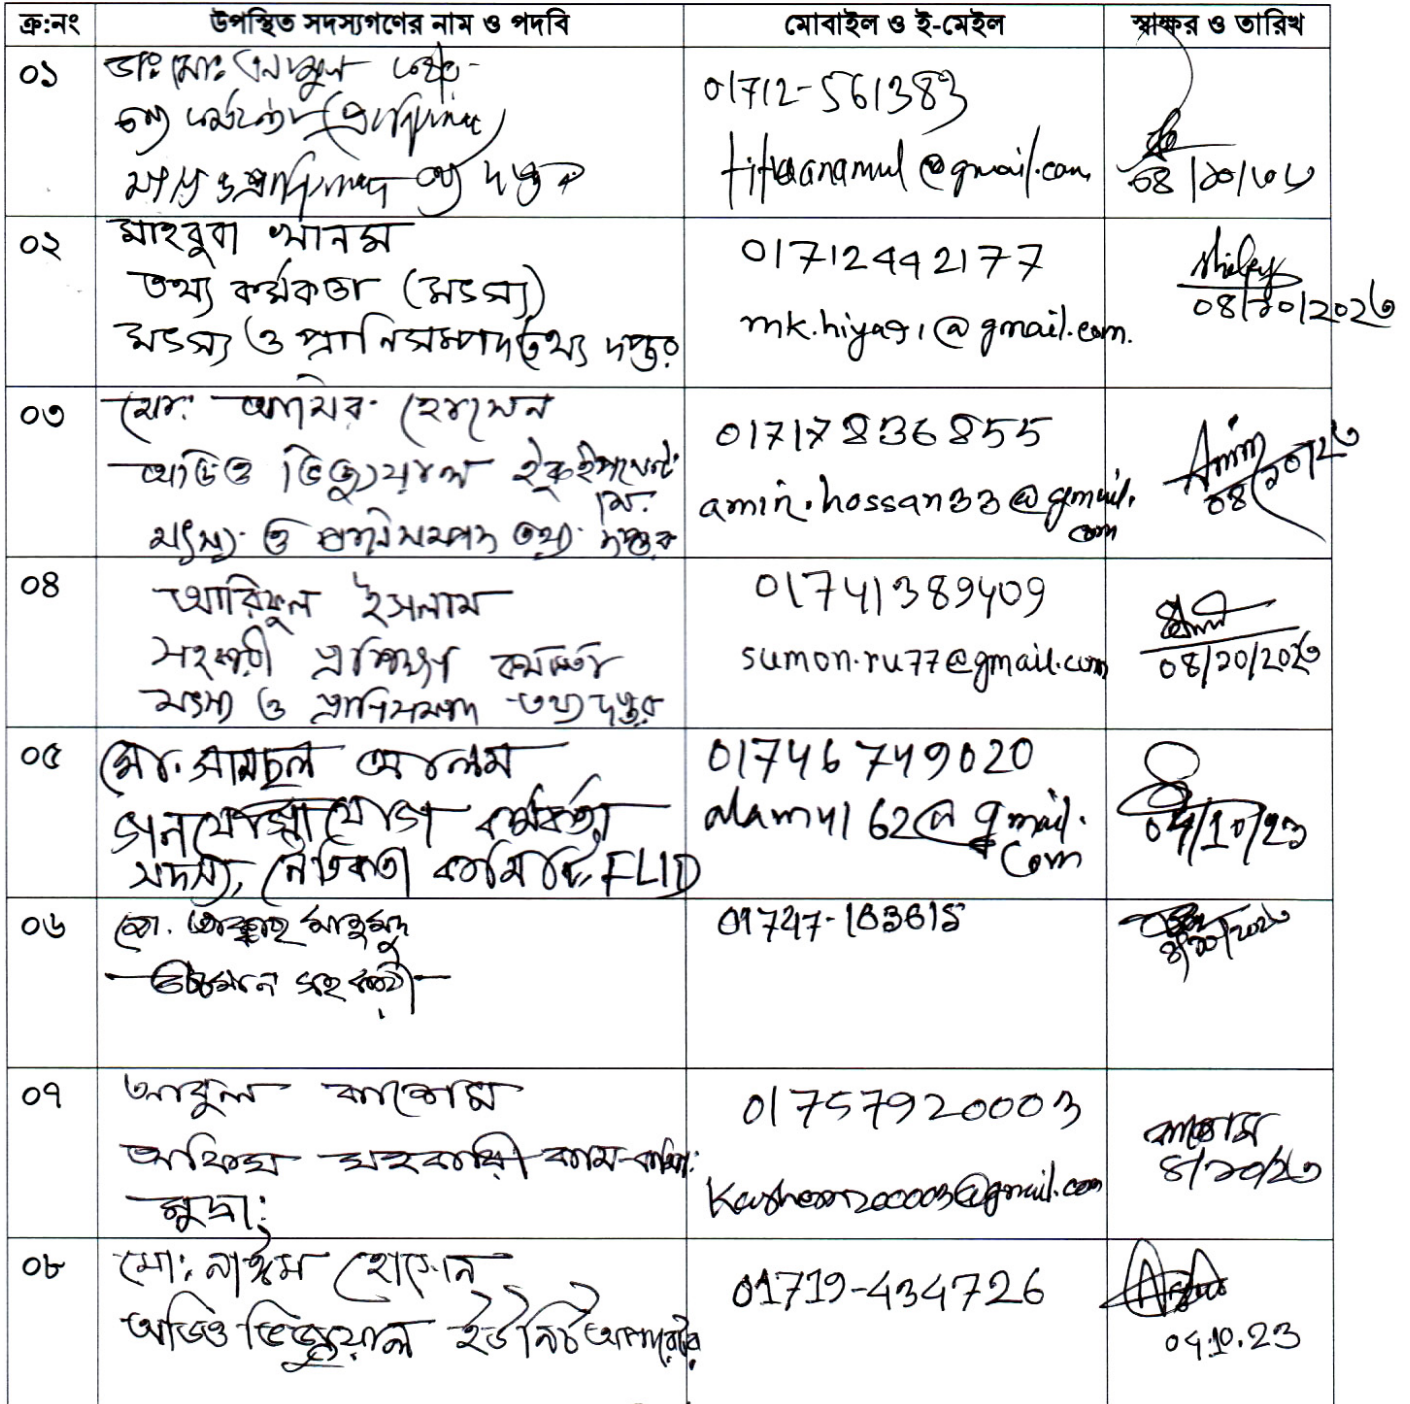 ক্র:নং উপস্থিত সদস্যগণের নাম ও পদবি মোবাইল ও ই-মেইল স্বাক্ষর ও তারিখ
০১ ডাঃ মোঃ এনামুল
01712-561383
@gmail.com
০২ মাহবুবা খানম
তথ্য কর্মকর্তা (মৎস্য)
মৎস্য ও প্রাণিসম্পদ তথ্য দপ্তর
01712442177
@gmail.com.
০৪/১০/২০২৩
০৩ মো: আমির হোসেন
অডিও ভিজ্যুয়াল ইকুইপমেন্ট
মৎস্য ও প্রানিসম্পদ তথ্য দপ্তর
01717836855
amin.hossan33@gmail.
com
Amin
০৪/১০/২৩
০৪ আরিফুল ইসলাম
সহকারী কর্মকর্তা
মৎস্য ও প্রাণিসম্পদ তথ্য দপ্তর
01741389409
sumon.ru77@gmail.com
০৪/১০/২০২৩
০৫ মো: সামছুল আলম
গনযোগাযোগ কর্মকর্তা
সদস্য, নৈতিকতা কমিটি, FLID
01746749020
alamul62@gmail.
com
04/10/23
০৬ মো. মাহমুদ
সহকারী
৪/১০/২০২৩
০৭ আবুল কাশেম
অফিস সহকারী কাম-কম্পি:
মুদ্রা:
01757920003
Kashem200003@gmail.com
কাশেম
৪/১০/২৩
০৮ মো: নাঈম হোসেন
অডিও ভিজ্যুয়াল ইউনিট অপারেটর
01719-434726
04.10.23